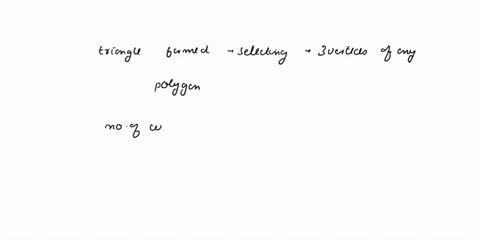 triangle formed → selecting → 3 vertices of any
polygon
no. of w